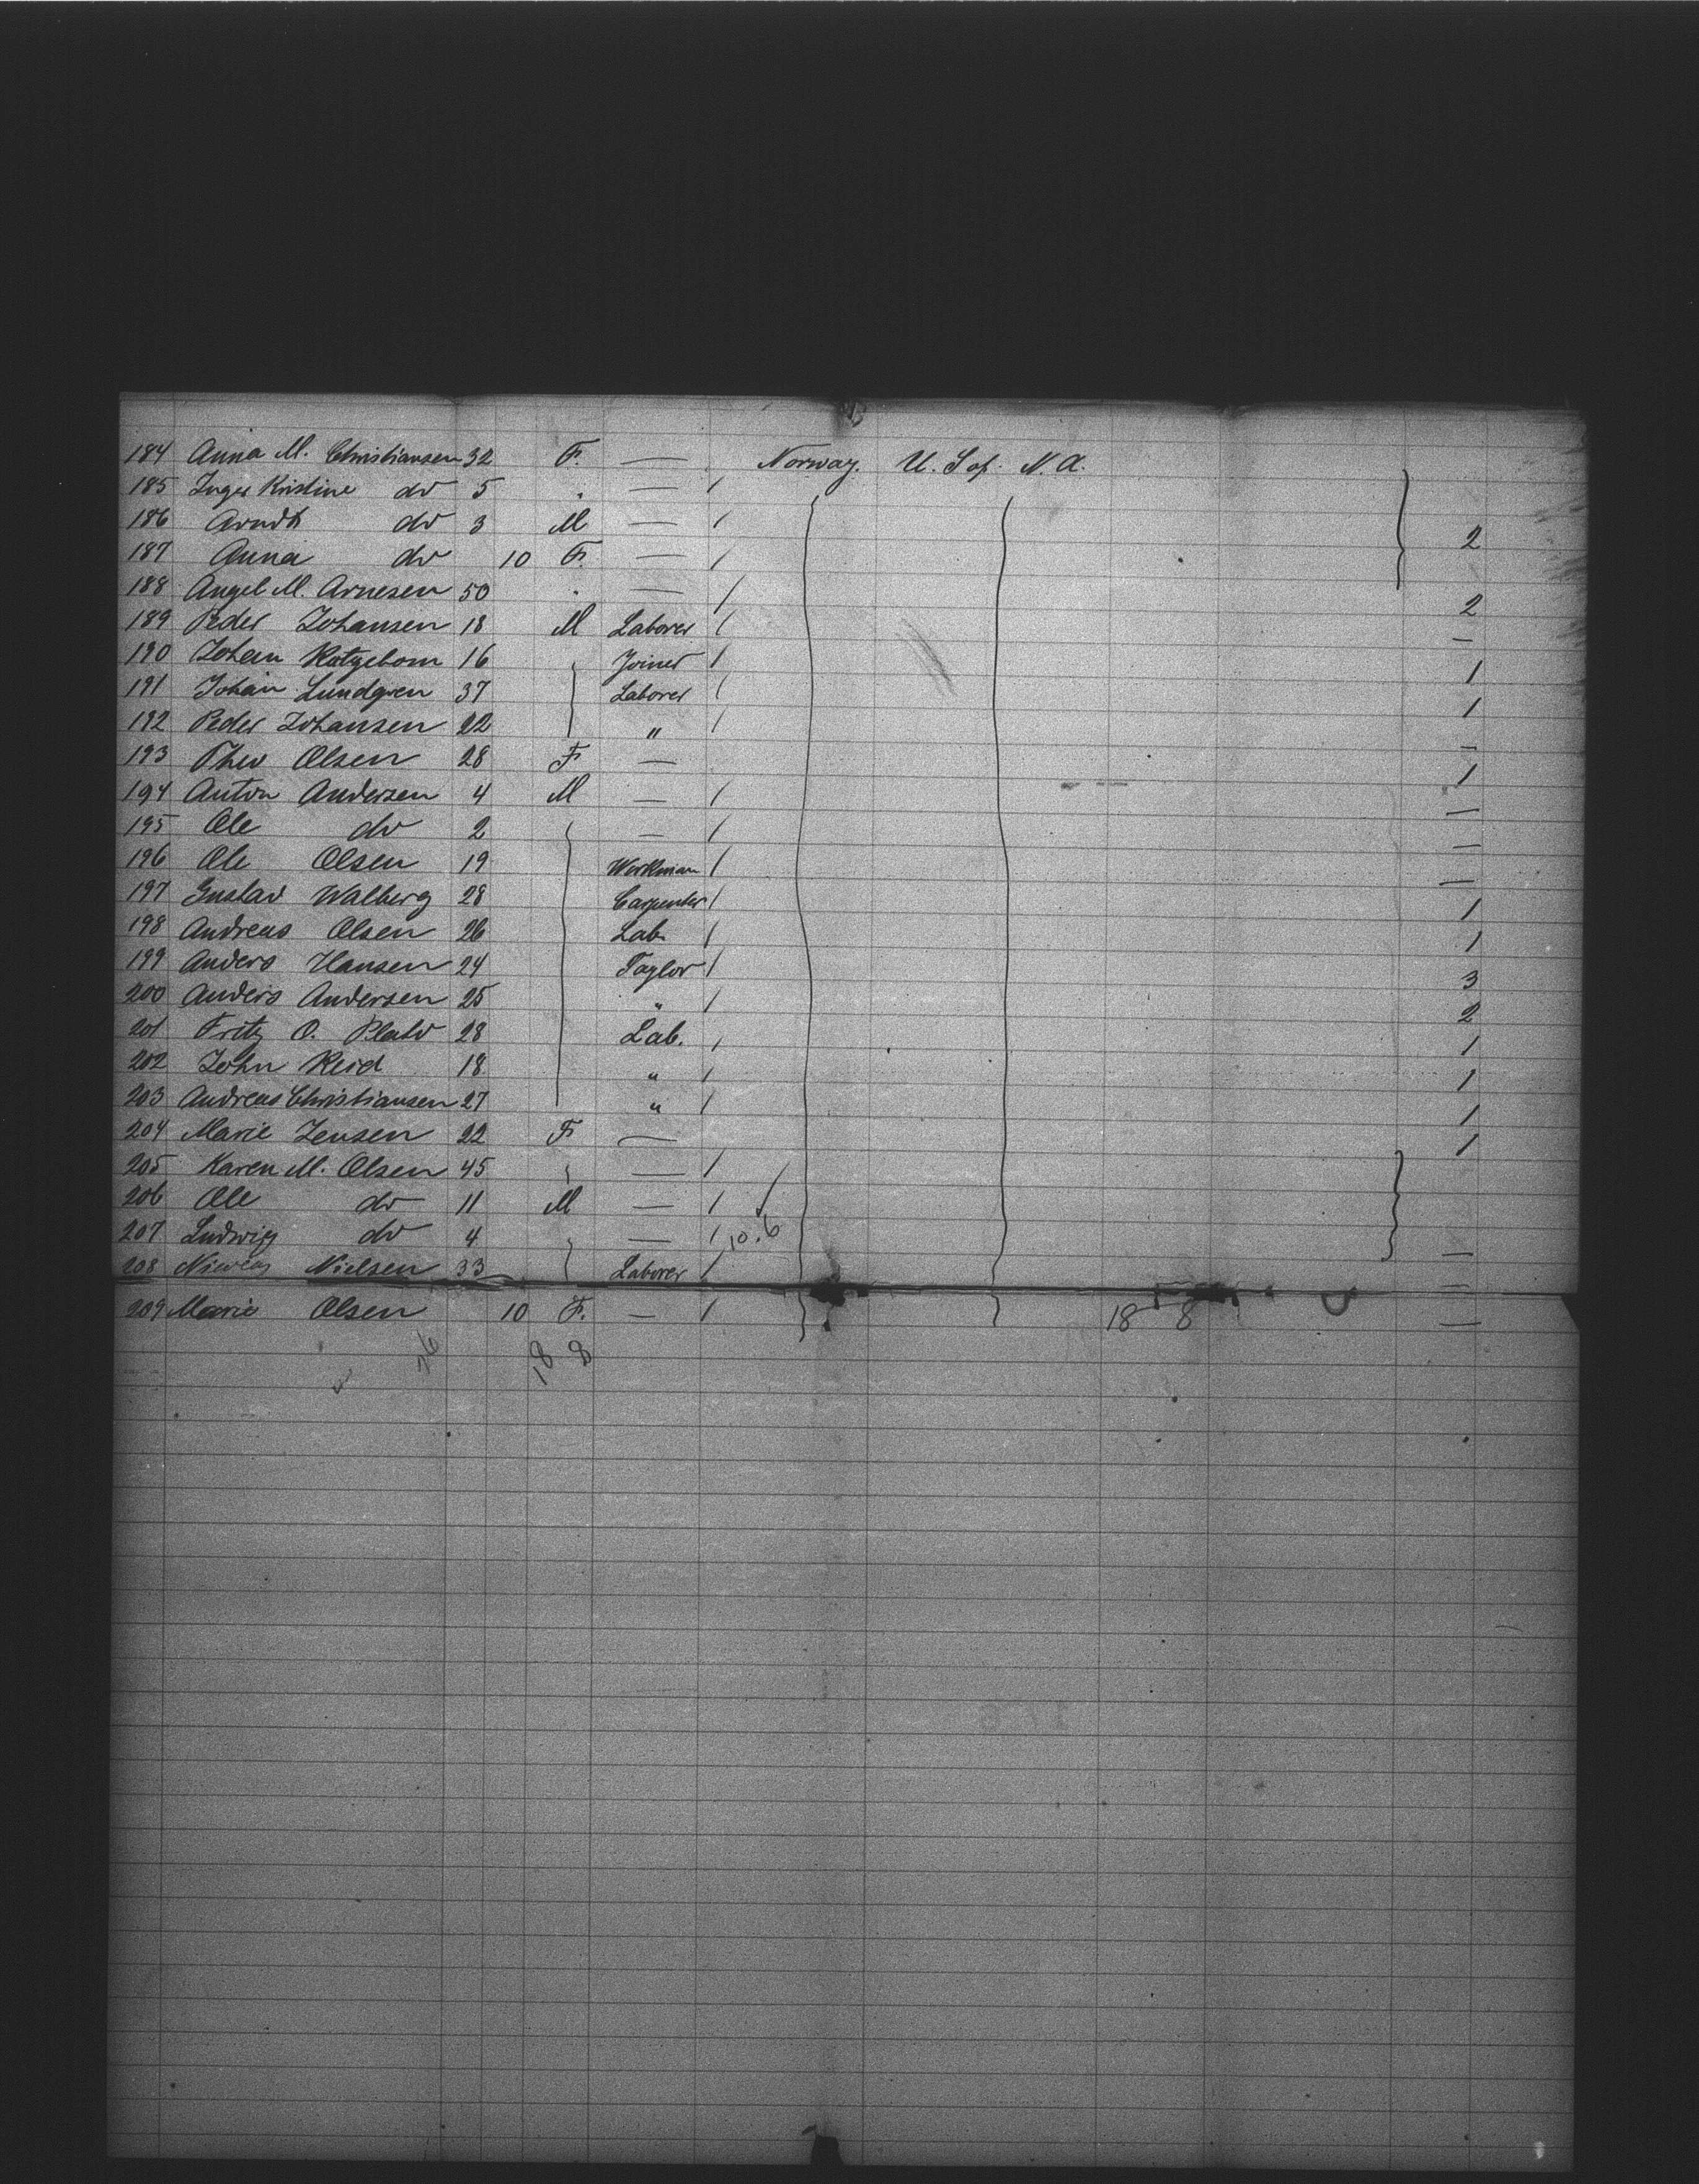 184 Anna M. Christiansen 32 F. — Norway. U. S of. N. A.
185 Inger Kristine do 5 " — /
186 Arndt do 3 M — /
187 Anna do 10 F. — / 2
188 Angel M. Arnesen 50 " — / 2
189 Peder Johansen 18 M Laborer / —
190 Johan 16 Joiner / 1
191 Johan Lundgren 37 Laborer / 1
192 Peder Johansen 22 " / —
193 Olsen 28 F — 1
194 Anton Andersen 4 M — / —
195 Ole do 2 — / —
196 Ole Olsen 19 Workman / —
197 Gustav Walberg 28 Carpenter / 1
198 Andreas Olsen 26 Lab. / 1
199 Anders Hansen 24 Taylor / 3
200 Anders Andersen 25 " / 2
201 Fritz O. 28 Lab. / 1
202 John Reid 18 " / 1
203 Andreas Christiansen 27 " / 1
204 Marie Jensen 22 F — 1
205 Karen M. Olsen 45 — /
206 Ole do 11 M — /
207 Ludwig do 4 — / 10.6 —
208 Nielsen 33 Laborer / —
209 Marie Olsen 10 F. — / 18 8 —
26 18 8